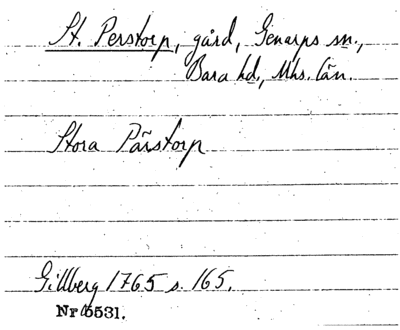 St. Perstorp, gård, Genarps sn.,
Bara hd., Mhs. län.
Stora Pärstorp
Gillberg 1765 s. 165.
Nr 5531.